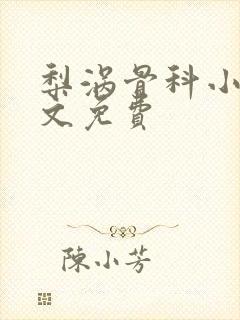 梨涡骨科小
文免費
陳小芳